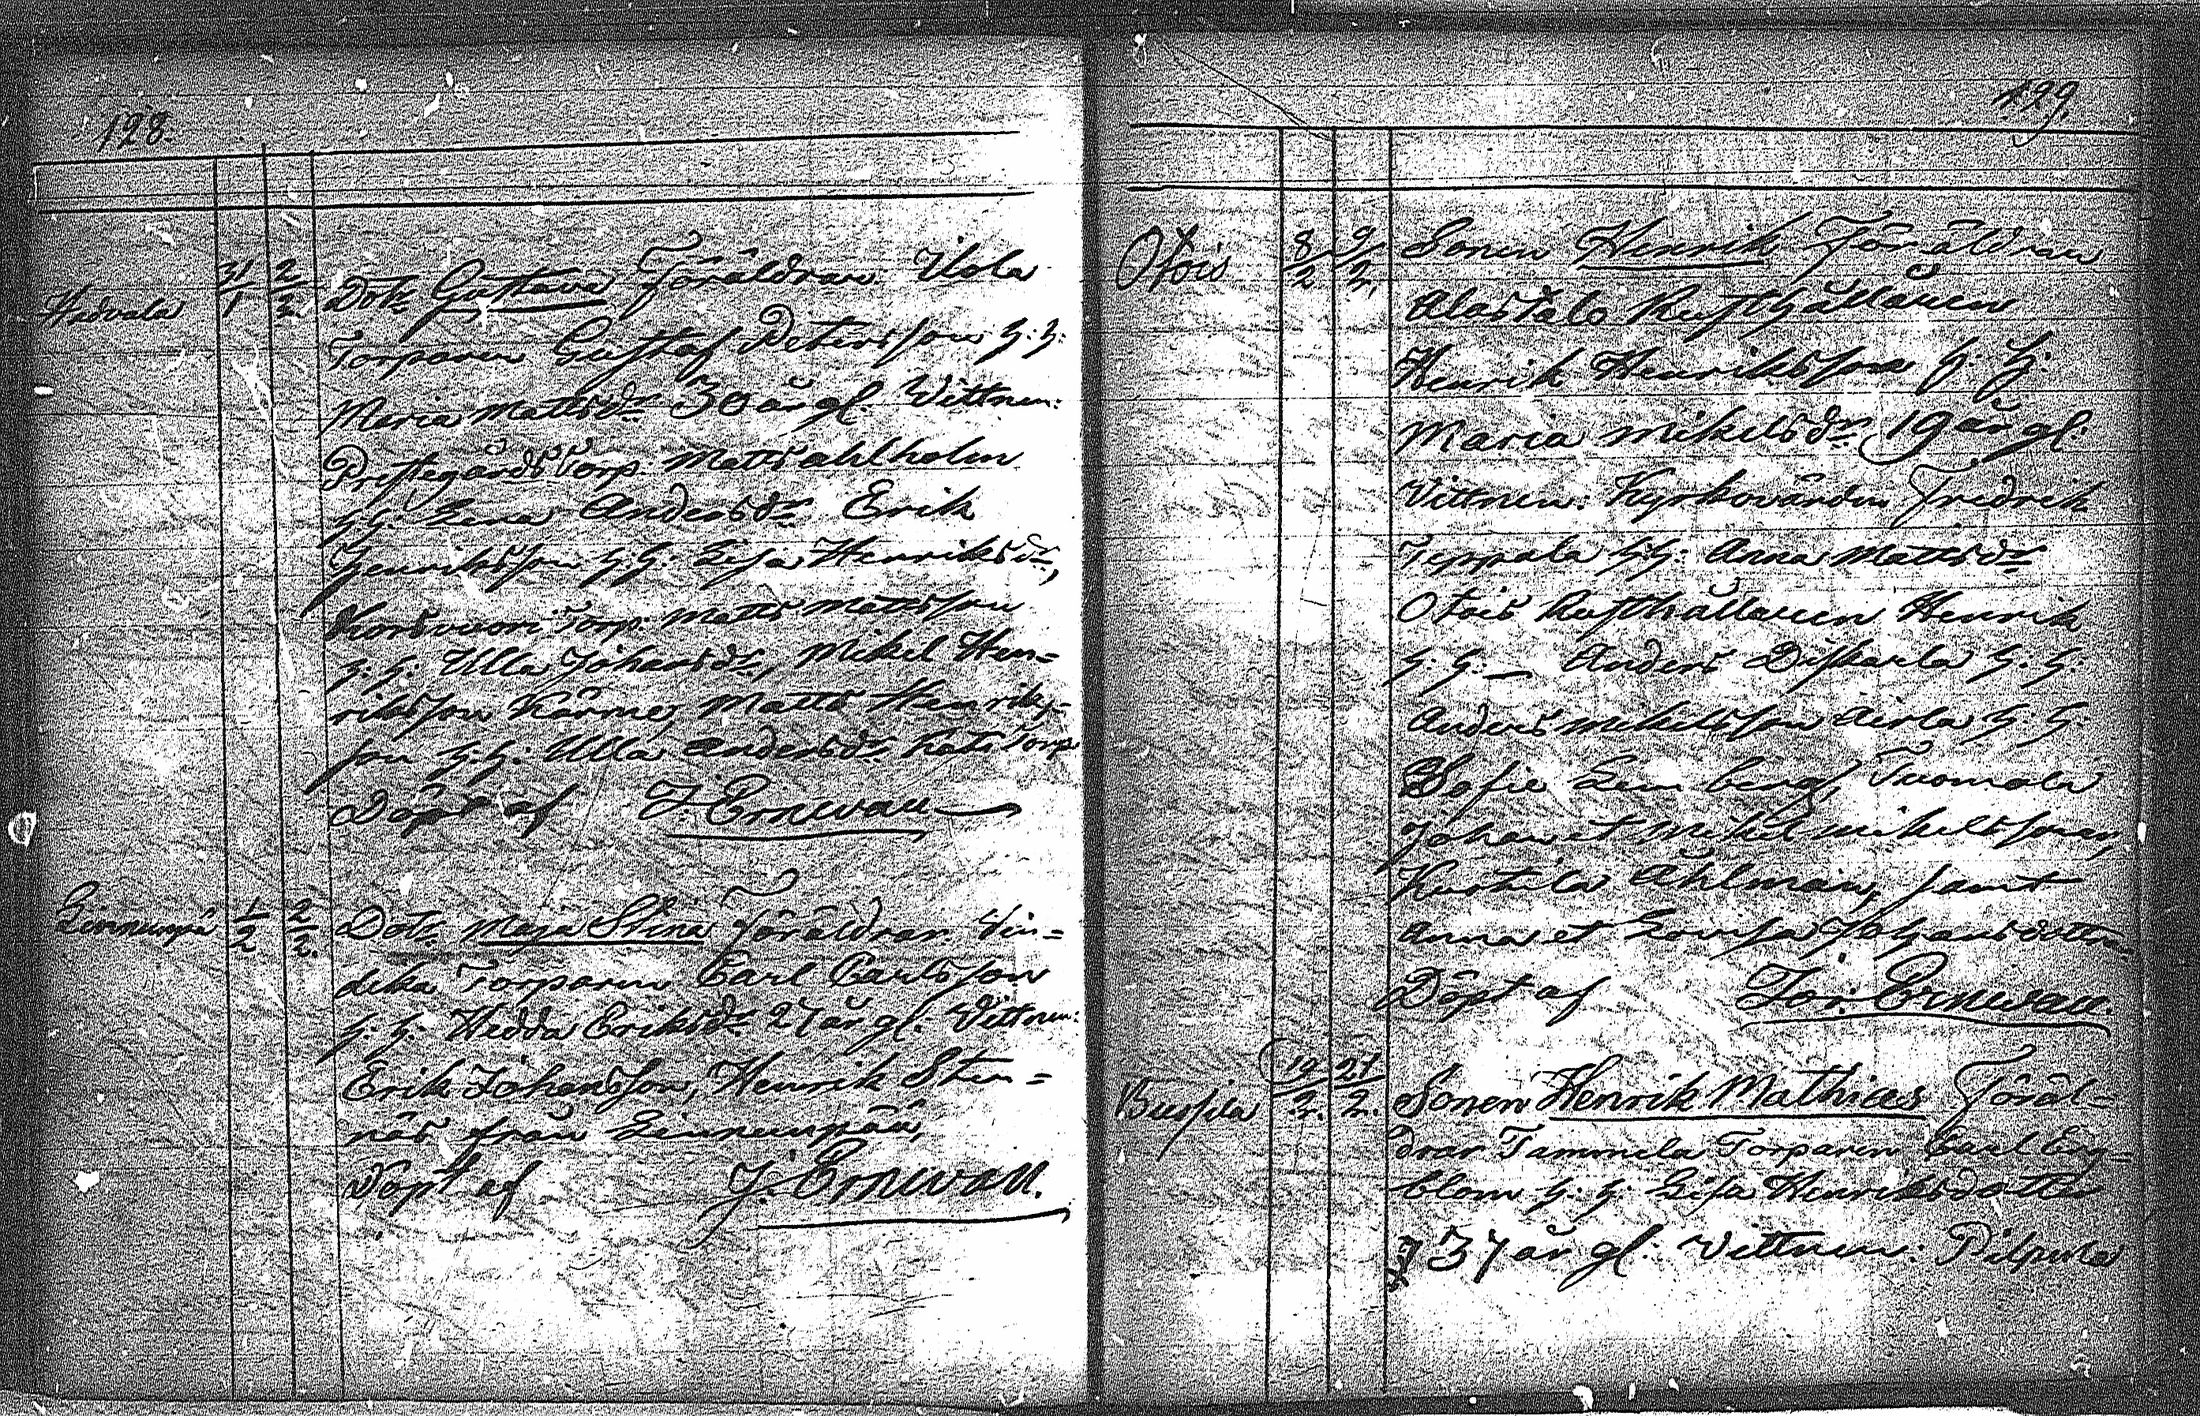 128.
Hedvala 31/1 2/2 Dotr Gustava Föräldrar Ilola
Torparen Gustaf Petersson h: h:
Maria Mattsdr 30 år gl. Vittnen:
Prestegårds Torp. Matts Ahlholm
h: h: Lena Andersdr Erik
Henriksson h: h: Lisa Henriksdr,
Torp. Matts Mattsson
h: h: Ulla Johansdr, Mikel Hen=
riksson Matts Henriks=
son h: h: Ulla Andersdr Torp.
Döpt af J Ernwall
Linnunpä 1/2 2/2. Dotr Maja Stina Föräldrar
Torparen Carl Carlsson
h: h: Hedda Eriksdr 27 år gl. Vittnen:
Erik Johansson, Henrik Sten=
näs från Linnunpää,
Döpt af J. Ernwall.
129.
Otois 8/2 9/2. Sonen Henrik Föräldrar
Alastalo Rusthållaren
Henrik Henriksson h: h:
Maria Mikelsdr 19 år gl.
Vittnen: Kyrkovärden Fredrik
h: h: Anna Mattsdr
Otois Rusthållaren Henrik
h: h: — Anders h: h:
Anders Mikelsson Airla h: h:
Sofie Lemberg, Tuomola
Johan et Mikel Mikelssoner,
Kustila Åhlman, samt
Anna et Lovisa Johansdöttrar
Döpt af Joh: Ernwall.
Bussila 19/2. 21/2. Sonen Henrik Mathias Föräl=
drar Tammela Torparen Carl Eng=
blom h: h: Lisa Henriksdotter
37 år gl. Vittnen: Pilpula